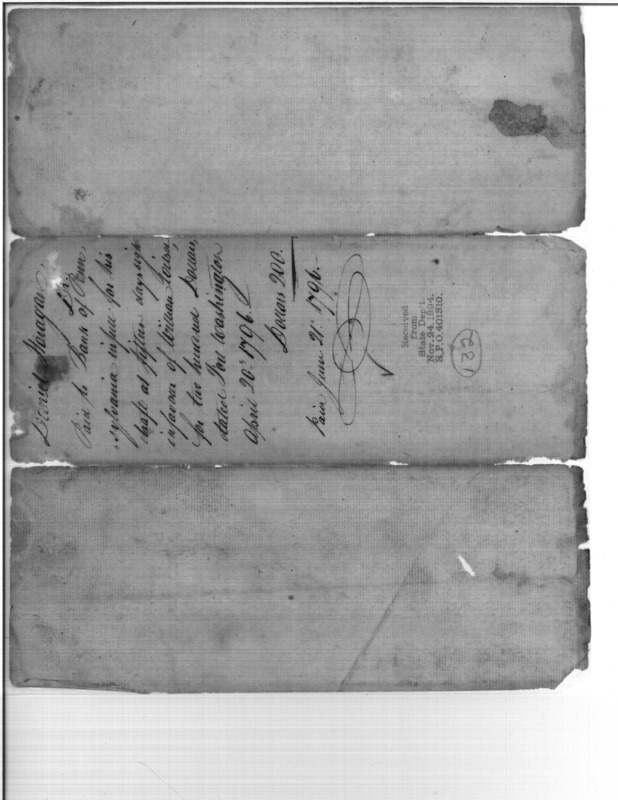 Daniel Dr
Paid to Bank of Penn
sylvania infine for his
draft at fifteen days sight
infavour of William
for two hundred Dollars,
dated Fort Washington
April 20th 1796
Dollars 200.
Paid June 21st 1796.
Received
from
State Dep't.
Nov. 24. 1894.
R.P.O. 401310.
122